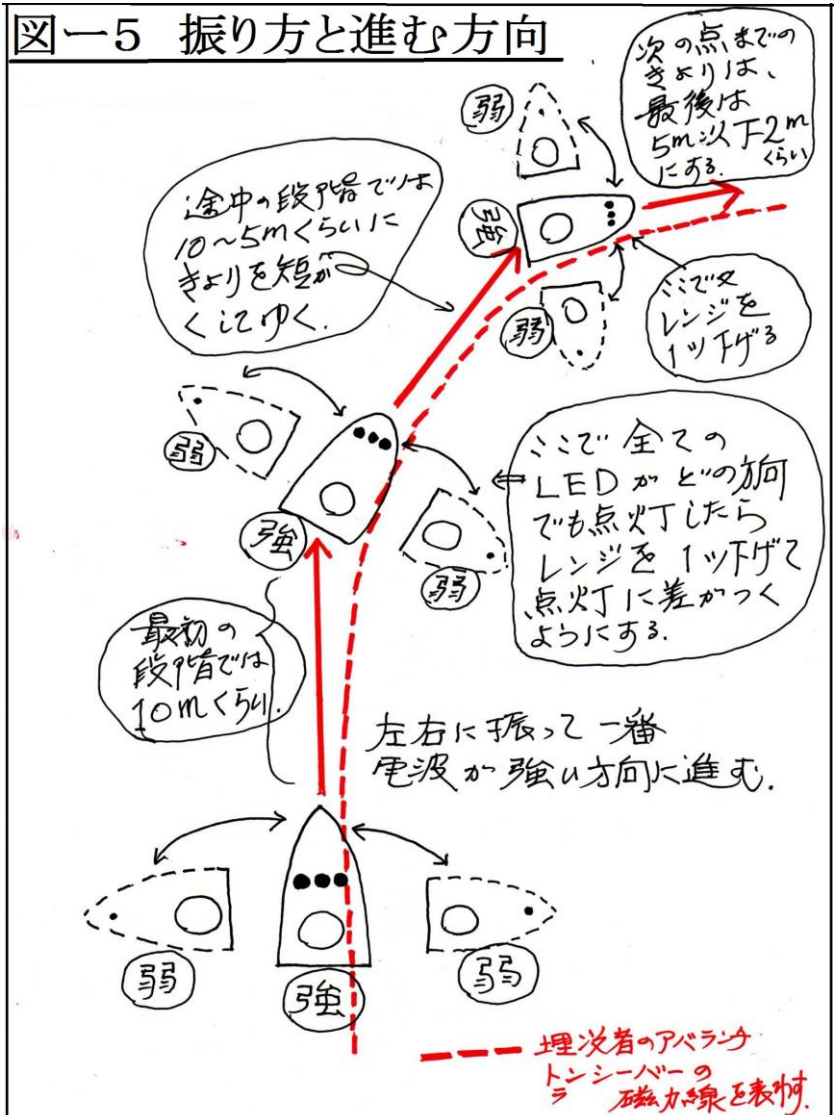 図ー5 振り方と進む方向
次の点までの
きょりは、
最後は
5m以下2m
くらい
にする.
弱
強
弱
途中の段階では
10〜5mくらいに
きょりを短か
くしてゆく.
ここで又
レンジを
1ツ下げる
弱
強
弱
ここで全ての
LEDがどの方向
でも点灯したら
レンジを1ツ下げて
点灯に差がつく
ようにする.
最初の
段階では
10mくらい.
左右に振って一番
電波が強い方向に進む.
弱
強
弱
埋没者のアバランチ
トランシーバーの
磁力線を表わす.